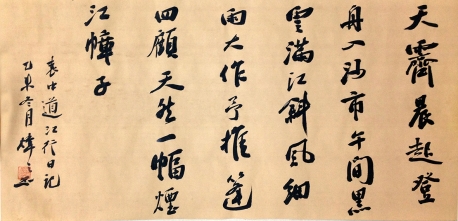 天霽晨起登
舟入沙市午間黑
雲滿江斜風細
雨大作予推篷
四顧天然一幅煙
江幛子
袁中道江行日記
乙未冬月